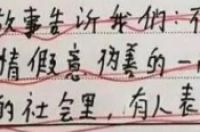 故事告诉我们:不
情假意伪善的一
的社会里,有人表